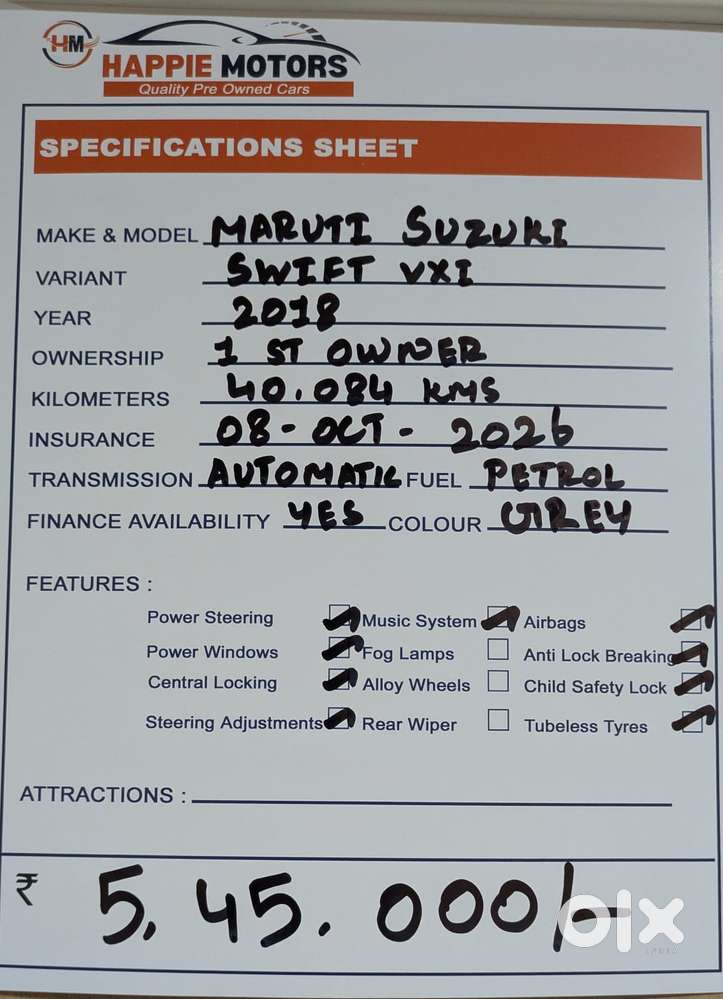 HM HAPPIE MOTORS
Quality Pre Owned Cars
SPECIFICATIONS SHEET
MAKE & MODEL MARUTI SUZUKI
VARIANT SWIFT VXI
YEAR 2018
OWNERSHIP 1 ST OWNER
KILOMETERS 40.084 KMS
INSURANCE 08-OCT-2026
TRANSMISSION AUTOMATIC FUEL PETROL
FINANCE AVAILABILITY YES COLOUR GREY
FEATURES :
Power Steering Music System Airbags
Power Windows Fog Lamps Anti Lock Breaking
Central Locking Alloy Wheels Child Safety Lock
Steering Adjustments Rear Wiper Tubeless Tyres
ATTRACTIONS :
₹ 5,45.000/-
olx